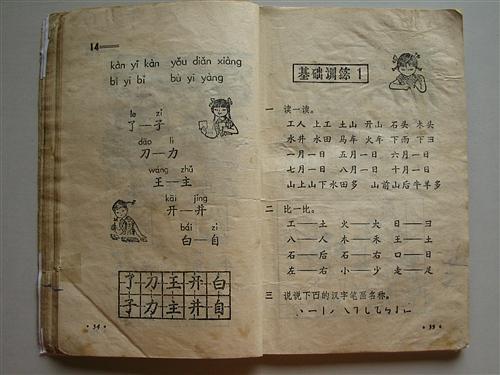 14——
kàn yī kàn yǒu diǎn xiàng
bǐ yī bǐ bù yí yàng
le zǐ
了—子
dāo lì
刀—力
wáng zhǔ
王—主
kāi jǐng
开—井
bái zì
白—自
了 刀 王 开 白
子 力 主 井 自
·34·
基础训练1
一 读一读。
工人 上工 土山 开山 石头 木头
水井 水田 马车 火车 下雨
一月一日 五月一日 六月一日
七月一日 八月一日 十月一日
山上山下水田多 山前山后牛羊多
二 比一比。
工——土
八——人 木——禾 王——土
石——后 石——右 口——日
左——右 小——少 走——足
三 说说下面的汉字笔画名称。
·35·